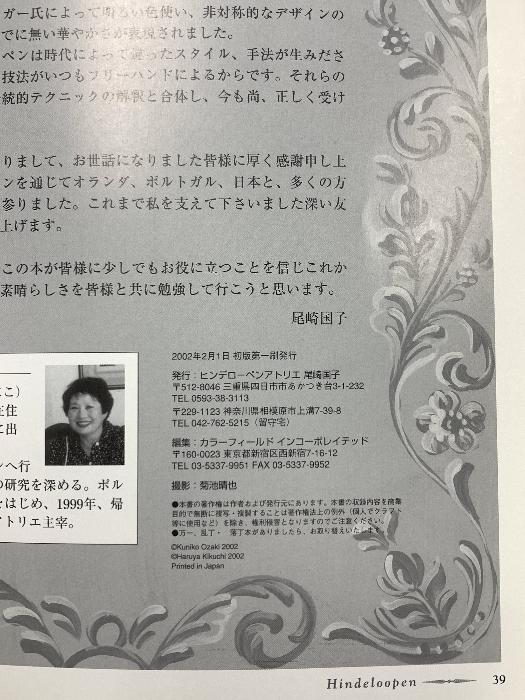 ガー氏によって明るい色使い、非対称的なデザインの
でに無い華やかさが表現されました。
ペンは時代によって違ったスタイル、手法が生みださ
技法がいつもフリーハンドによるからです。それらの
統的テクニックの解釈と合体し、今も尚、正しく受け
りまして、お世話になりました皆様に厚く感謝申し上
ンを通じてオランダ、ポルトガル、日本と、多くの方
参りました。これまで私を支えて下さいました深い友
上げます。
この本が皆様に少しでもお役に立つことを信じこれか
素晴らしさを皆様と共に勉強して行こうと思います。
尾崎国子
こ)
住
に出
ンへ行
の研究を深める。ポル
をはじめ、1999年、帰
アトリエ主宰。
2002年2月1日 初版第一刷発行
発行:ヒンデローペンアトリエ 尾崎国子
〒512-8046 三重県四日市市あかつき台3-1-232
TEL 0593-38-3113
〒229-1123 神奈川県相模原市上溝7-39-8
TEL 042-762-5215(留守宅)
編集:カラーフィールド インコーポレイテッド
〒160-0023 東京都新宿区西新宿7-16-12
TEL 03-5337-9951 FAX 03-5337-9952
撮影:菊池晴也
●本書の著作権は作者および発行元にあります。本書の収録内容を商業
目的で無断に複写・複製することは著作権法上の例外(個人でクラフト
等に使用など)を除き、権利侵害となりますのでご注意ください。
●万一、乱丁・落丁本がありましたら、お取り替えいたします。
©Kuniko Ozaki 2002
©Haruya Kikuchi 2002
Printed in Japan
Hindeloopen
39